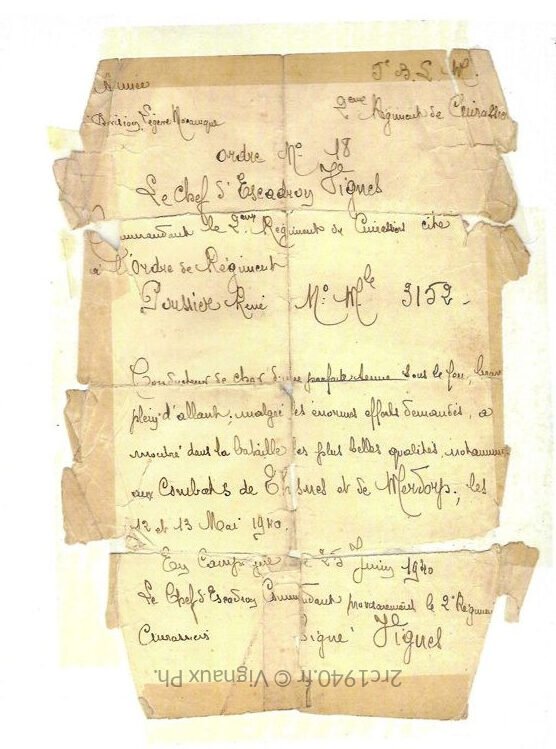 Armée T. B. S. M.
Division Légère Mécanique 2ème Régiment de Cuirassiers
Ordre No 18
Le Chef d'Escadron Vignes
Commandant le 2eme Régiment de Cuirassiers cite
à l'Ordre de Régiment
René No Mle 3152 -
Conducteur de char d'une parfaite tenue sous le feu, brave
plein d'allant, malgré les énormes efforts demandés, a
montré dans la bataille les plus belles qualités, notamment
aux Combats de et de Merdorp, les
12 et 13 Mai 1940.
En Campagne le 25 Juin 1940
Le Chef d'Escadron Commandant provisoirement le 2e Régiment
Cuirassiers Signé Vignes
2rc1940.fr © Vignaux Ph.